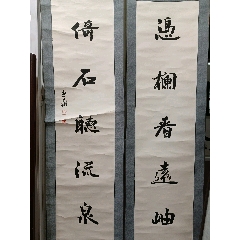 憑欄看遠岫
倚石聽流泉